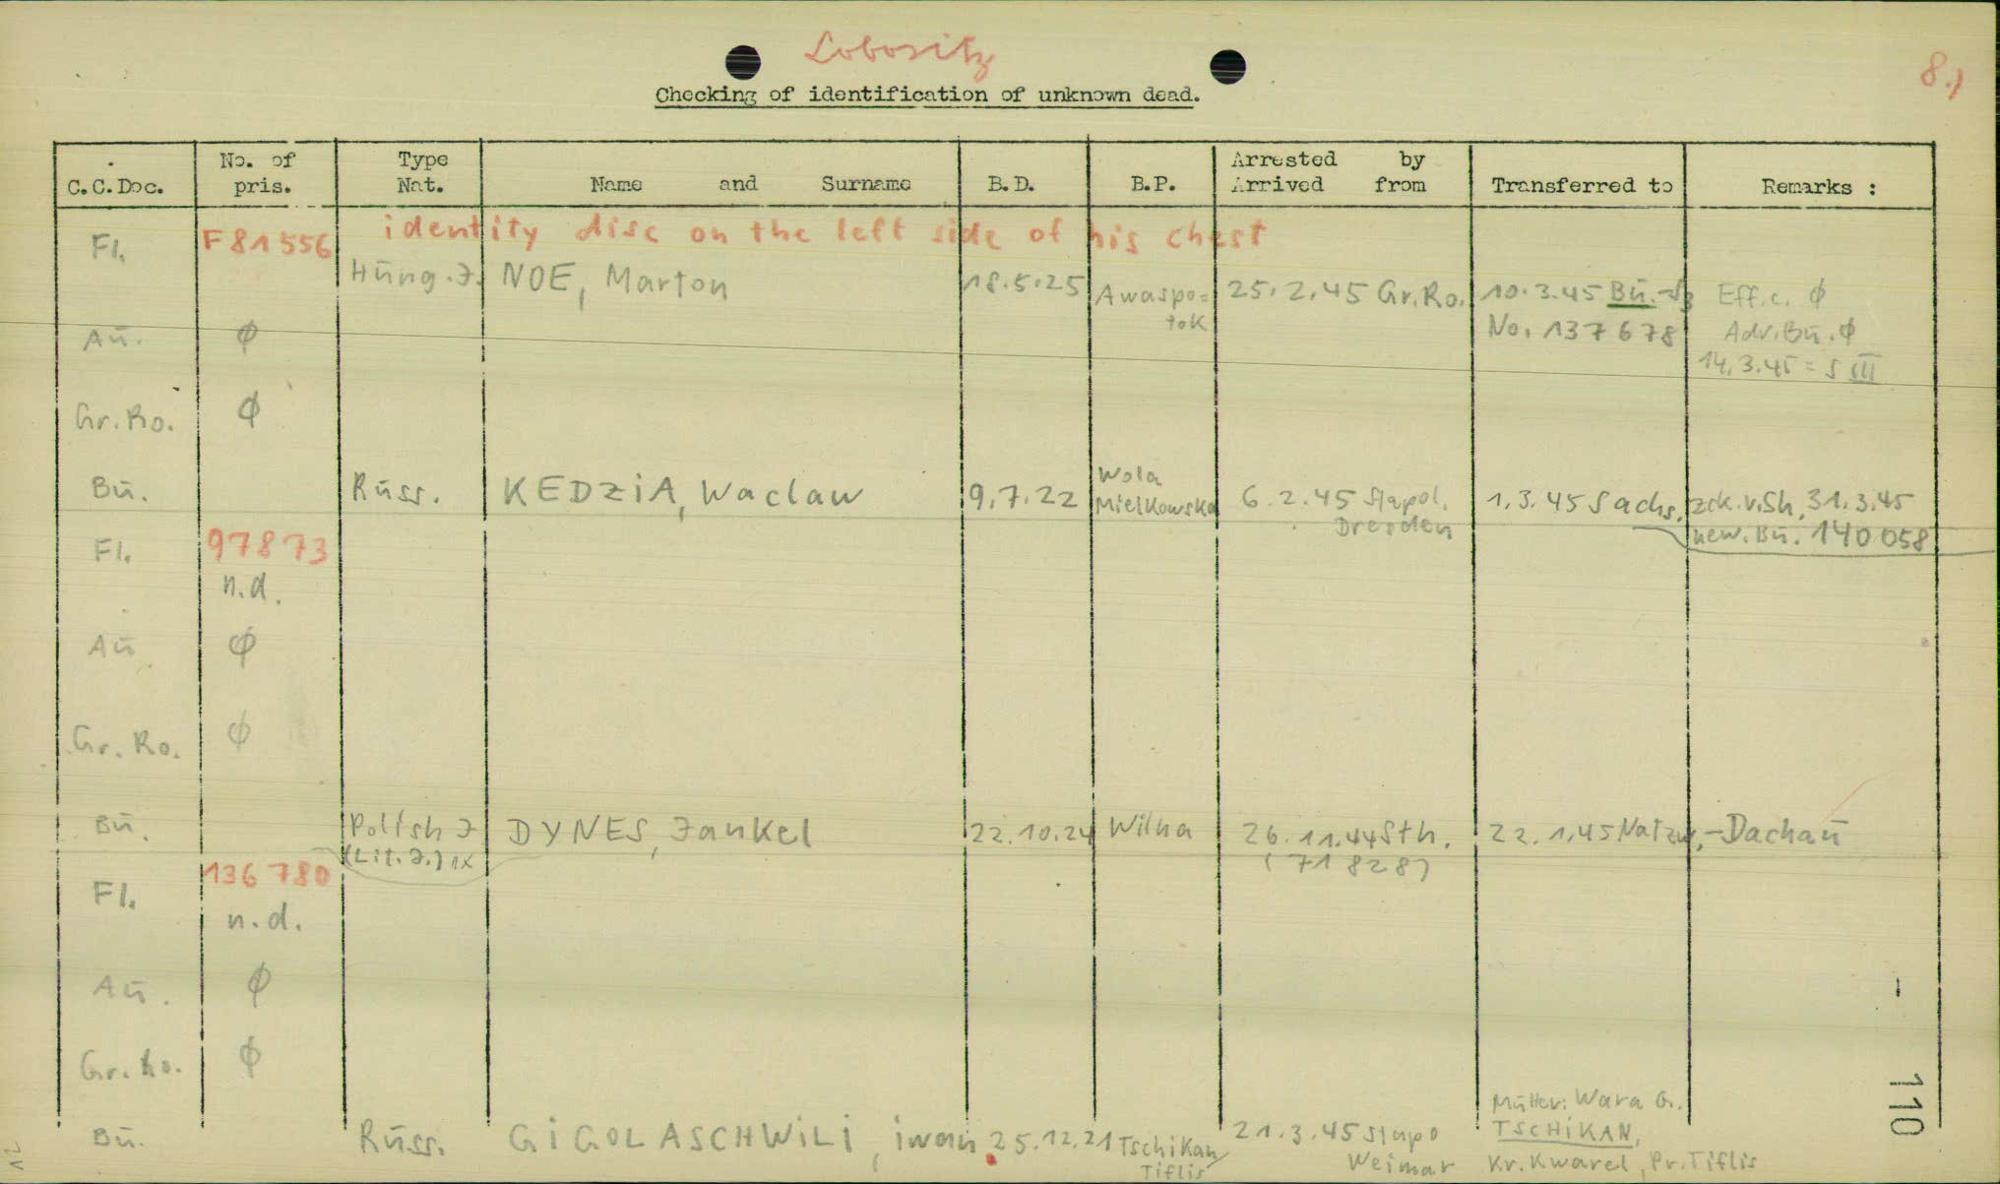 Lobositz
8.)
Checking of identification of unknown dead.
C.C.Doc. No. of pris. Type Nat. Name and Surname B.D. B.P. Arrested by Arrived from Transferred to Remarks :
Fl. F 81556 identity disc on the left side of his chest
Hūng. J. NOE, Marton 18.5.25 Awaspo= tok 25.2.45 Gr.Ro. 10.3.45 Bū. No. 137678 Eff.c. ϕ Adr.Bū. ϕ 14.3.45 = S III
Aū. ϕ
Gr.Ro. ϕ
Bū. Rūss. KEDZiA, Waclaw 9.7.22 Wola Mielkowska 6.2.45 Stapol. Dresden 1.3.45 Sachs. zck.v.Sh. 31.3.45 new.Bū. 140058
Fl. 97873 n.d.
Aū ϕ
Gr. Ro. ϕ
Bū. Polish J (Lit. J.) 1x DYNES, Jankel 22.10.24 Wilna 26.11.44 Sth. (71828) 22.1.45 Natzw. - Dachaū
Fl. 136780 n.d.
Aū. ϕ
Gr.Ro. ϕ
Bū. Rūss. GiGOLASCHWiLi, iwan 25.12.21 Tschikan/ Tiflis 21.3.45 Stapo Weimar Mūtter: Wara G. TSCHiKAN, Kr. Kwarel, Pr. Tiflis
- 110